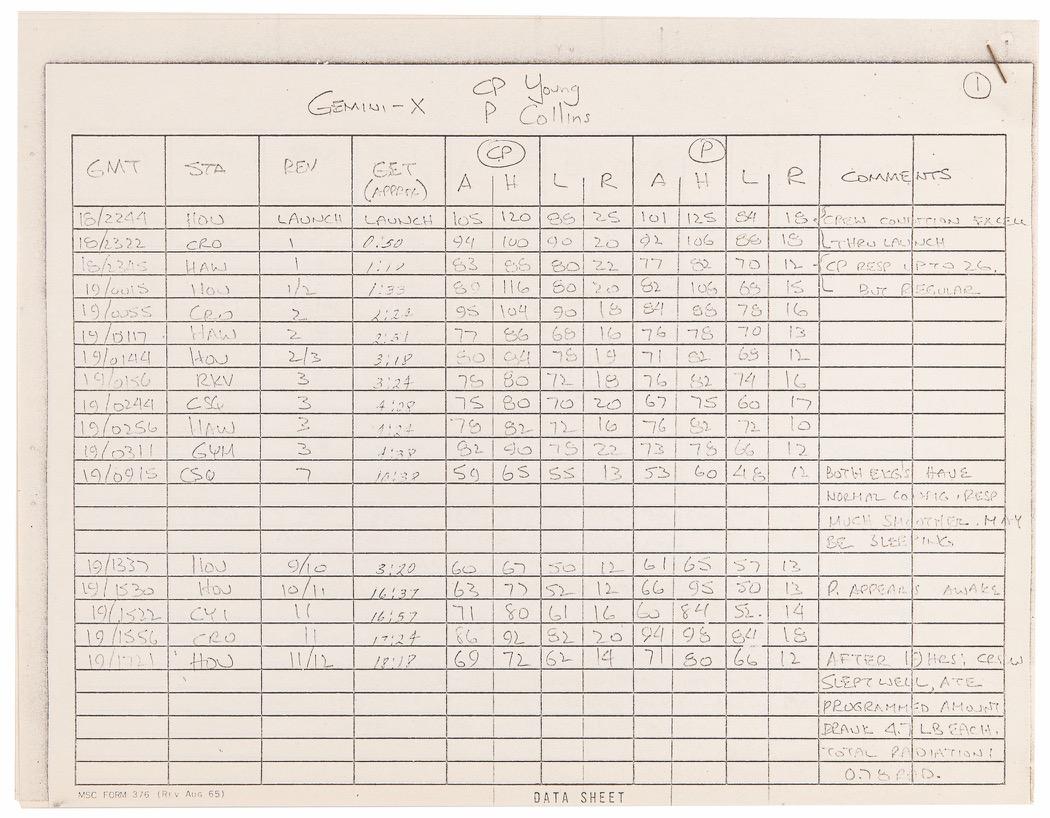 CP Young
GEMINI-X P Collins
1
CP P
GMT STA REV GET (APPROX) A H L R A H L R COMMENTS
18/2244 HOU LAUNCH LAUNCH 105 120 88 25 101 125 84 18 CREW CONDITION EXCELL
18/2322 CRO 1 0:50 94 100 90 20 92 106 88 18 THRU LAUNCH
18/2345 HAW 1 83 88 80 22 77 82 70 12 CP RESP UP TO 26.
19/0015 HOU 1/2 1:33 89 116 80 20 82 106 68 15 BUT REGULAR
19/0055 CRO 2 95 104 90 18 84 88 78 16
19/0117 HAW 2 77 86 68 16 76 78 70 13
19/0144 HOU 2/3 3:18 80 94 78 19 71 82 69 12
19/0156 RKV 3 3:24 78 80 72 18 76 82 74 16
19/0244 CSQ 3 75 80 70 20 67 75 60 17
19/0256 HAW 3 78 82 72 16 76 82 72 10
19/0311 GYM 3 4:38 82 90 78 22 73 78 66 12
19/0915 CSQ 7 59 65 55 13 53 60 48 12 BOTH EKG'S HAVE
NORMAL CONFIG. RESP
MUCH SMOOTHER. MAY
BE SLEEPING
19/1337 HOU 9/10 3:20 60 67 50 12 61 65 57 13
19/1530 HOU 10/11 16:37 63 77 52 12 66 95 50 13 P. APPEARS AWAKE
19/1522 CYI 11 16:57 71 80 61 16 60 84 52. 14
19/1556 CRO 11 17:24 86 92 82 20 94 98 84 18
19/1721 HOU 11/12 18:18 69 72 62 14 71 80 66 12 AFTER HRS; CREW
SLEPT WELL, ATE
PROGRAMMED AMOUNT
DRANK 4.7 LB EACH.
TOTAL RADIATION:
0.78 RAD.
MSC FORM 376 (REV AUG 65) DATA SHEET